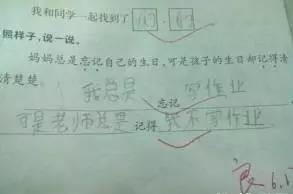 我和同学一起找到了
照样子,说一说。
妈妈总是忘记自己的生日,可是孩子的生日却记得清
清楚楚。
我总是 忘记 写作业
可是老师总是 记得 我不写作业
良 6.1